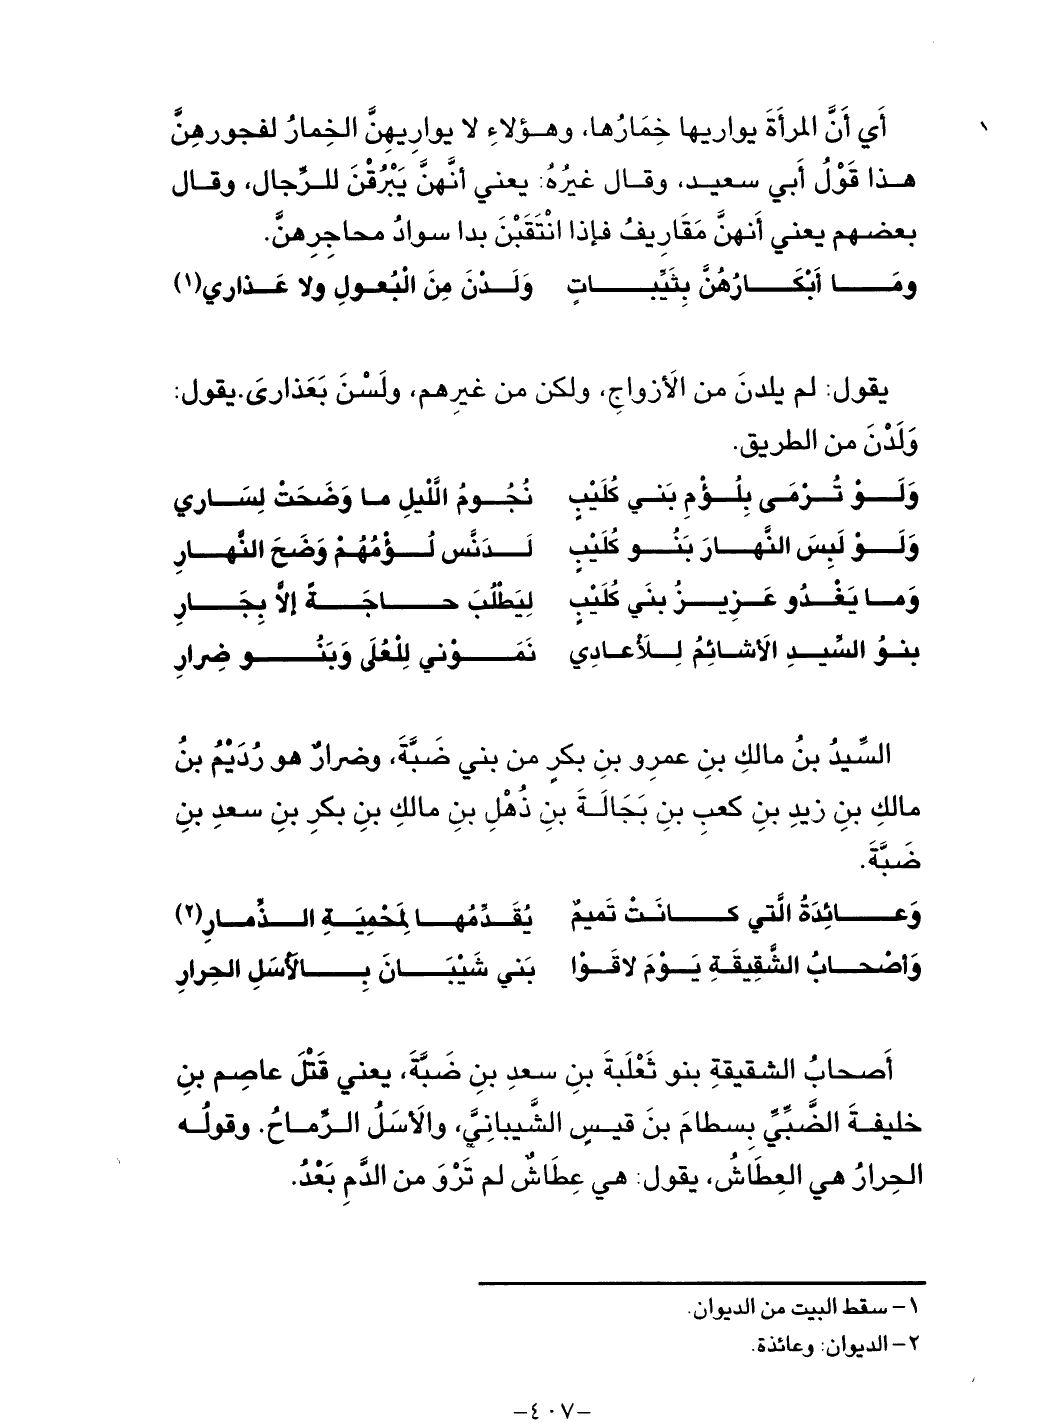 أَي أَنَّ المرأَةَ يواريها خِمَارُها، وهـؤلاءِ لا يواريهنَّ الخِمارُ لفجورهنَّ
هـذا قَوْلُ أَبي سعيـد، وقـال غيرُهُ: يعني أنَّهنَّ يَبْرُقْنَ للـرِّجال، وقـال
بعضـهم يعـني أَنهنَّ مَقَاريفُ فـإذا انْتَقَبْنَ بدا سوادُ محـاجرِهنَّ.
ومَـــا أَبْكَـــارُهُنَّ بِثَيِّبـــاتٍ وَلَـدْنَ مِنَ الْبُعـولِ ولا عَـذاري(١)
يقول: لم يلدنَ من الأزواجِ، ولكن من غيرِهم، ولَسْنَ بَعَذارىَ.يقول:
وَلَدْنَ من الطريق.
وَلَـــوْ تُـــرْمَى بِلُـــؤْمِ بَنـي كُلَيْبٍ نُجُـــومُ اللَّيْلِ مـا وَضَحَتْ لِسَـــاري
وَلَـــوْ لَبِسَ النَّهـــارَ بَنُـــو كُلَيْبٍ لَـــدَنَّس لُـــؤْمُهُمْ وَضَحَ النَّهـــارِ
وَمـا يَغْـــدُو عَـــزِيـــزُ بني كُلَيْبٍ لِيَطْلُبَ حـــاجَـــةً إلاَّ بِجَـــارِ
بنـوُ السِّيـدِ الأشائِمُ لِـلأعـادِي نَمَـــوْني لِلْعُلَى وَبَنُـــو ضِرارِ
السِّيدُ بنُ مالكِ بنِ عمرِو بنِ بكرٍ من بني ضَبَّةَ، وضرارٌ هو رُدَيْمُ بنُ
مالكِ بنِ زيدِ بنِ كعبِ بنِ بَجَالَـةَ بنِ ذُهْلِ بنِ مالكِ بنِ بكرِ بنِ سعدِ بنِ
ضَبَّةَ.
وَعـــائِدَةُ الَّتي كـــانَتْ تَميمٌ يُقَـدِّمُهـا لِمَحْمِيَـةِ الـذِّمـارِ(٢)
وَأصْحـابُ الشَّقِيقَـةِ يَـوْمَ لاقَـوْا بَني شَيْبَـــانَ بِـــالأَسَلِ الحِرارِ
أَصحابُ الشقيقةِ بنو ثَعْلَبةَ بنِ سعدِ بنِ ضَبَّةَ، يعني قَتْلَ عاصِم بنِ
خليفـةَ الضَّبِّيِّ بِسطامَ بنَ قيسٍ الشَّيبانيَّ، والأَسَلُ الـرِّمـاحُ. وقولُـه
الحِرارُ هي العِطَاشُ، يقول: هي عِطَاشٌ لم تَرْوَ من الدَّمِ بَعْدُ.
١- سقط البيت من الديوان.
٢- الديوان: وعائذة.
-٤٠٧-